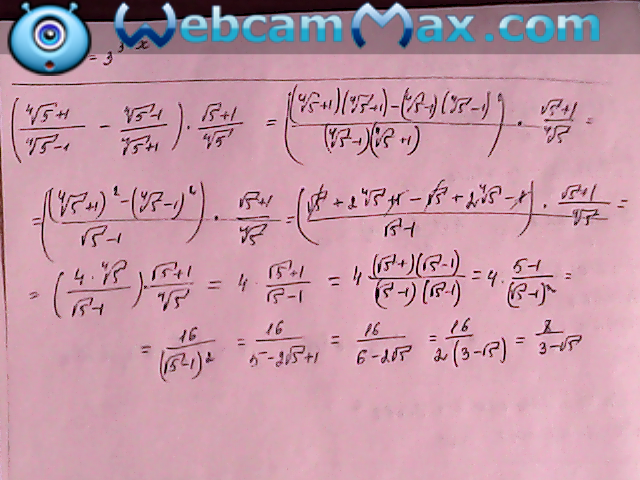 WebcamMax.com
= 3^{3^x}
(\frac{⁴√5+1}{⁴√5-1} - \frac{⁴√5-1}{⁴√5+1}) · \frac{√5+1}{⁴√5} = (\frac{(⁴√5+1)(⁴√5+1)-(⁴√5-1)(⁴√5-1)}{(⁴√5-1)(⁴√5+1)}) · \frac{√5+1}{⁴√5} =
= (\frac{(⁴√5+1)²-(⁴√5-1)²}{√5-1}) · \frac{√5+1}{⁴√5} = (\frac{√5+2⁴√5+1-√5+2⁴√5-1}{√5-1}) · \frac{√5+1}{⁴√5} =
= (\frac{4·⁴√5}{√5-1}) · \frac{√5+1}{⁴√5} = 4 · \frac{√5+1}{√5-1} = 4 \frac{(√5+)(√5-1)}{(√5-1)(√5-1)} = 4 · \frac{5-1}{(√5-1)²} =
= \frac{16}{(√5-1)²} = \frac{16}{5-2√5+1} = \frac{16}{6-2√5} = \frac{16}{2(3-√5)} = \frac{8}{3-√5}